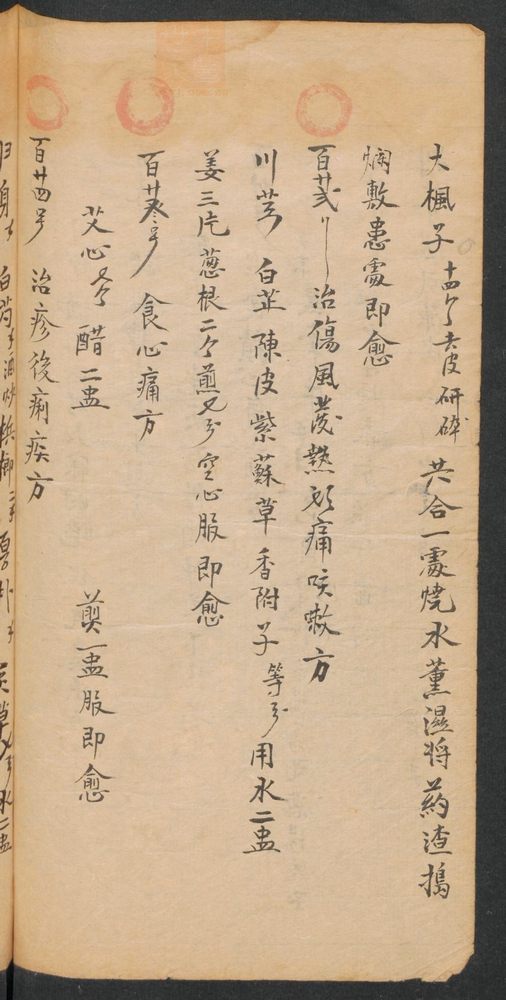 大楓子 十四个去皮研碎 共合一處燒水薰濕将葯渣搗
爛敷患處即愈
百廿弍 治傷風發熱頭痛咳嗽方
川芎 白芷 陳皮 紫蘇草 香附子 等分 用水二盅
姜三片 葱根二个 煎 分 空心服即愈
百廿叁号 食心痛方
艾心 醋二盅 煎一盅服即愈
百廿四号 治疹後痢疾方
归身 白芍 酒炒 水二盅